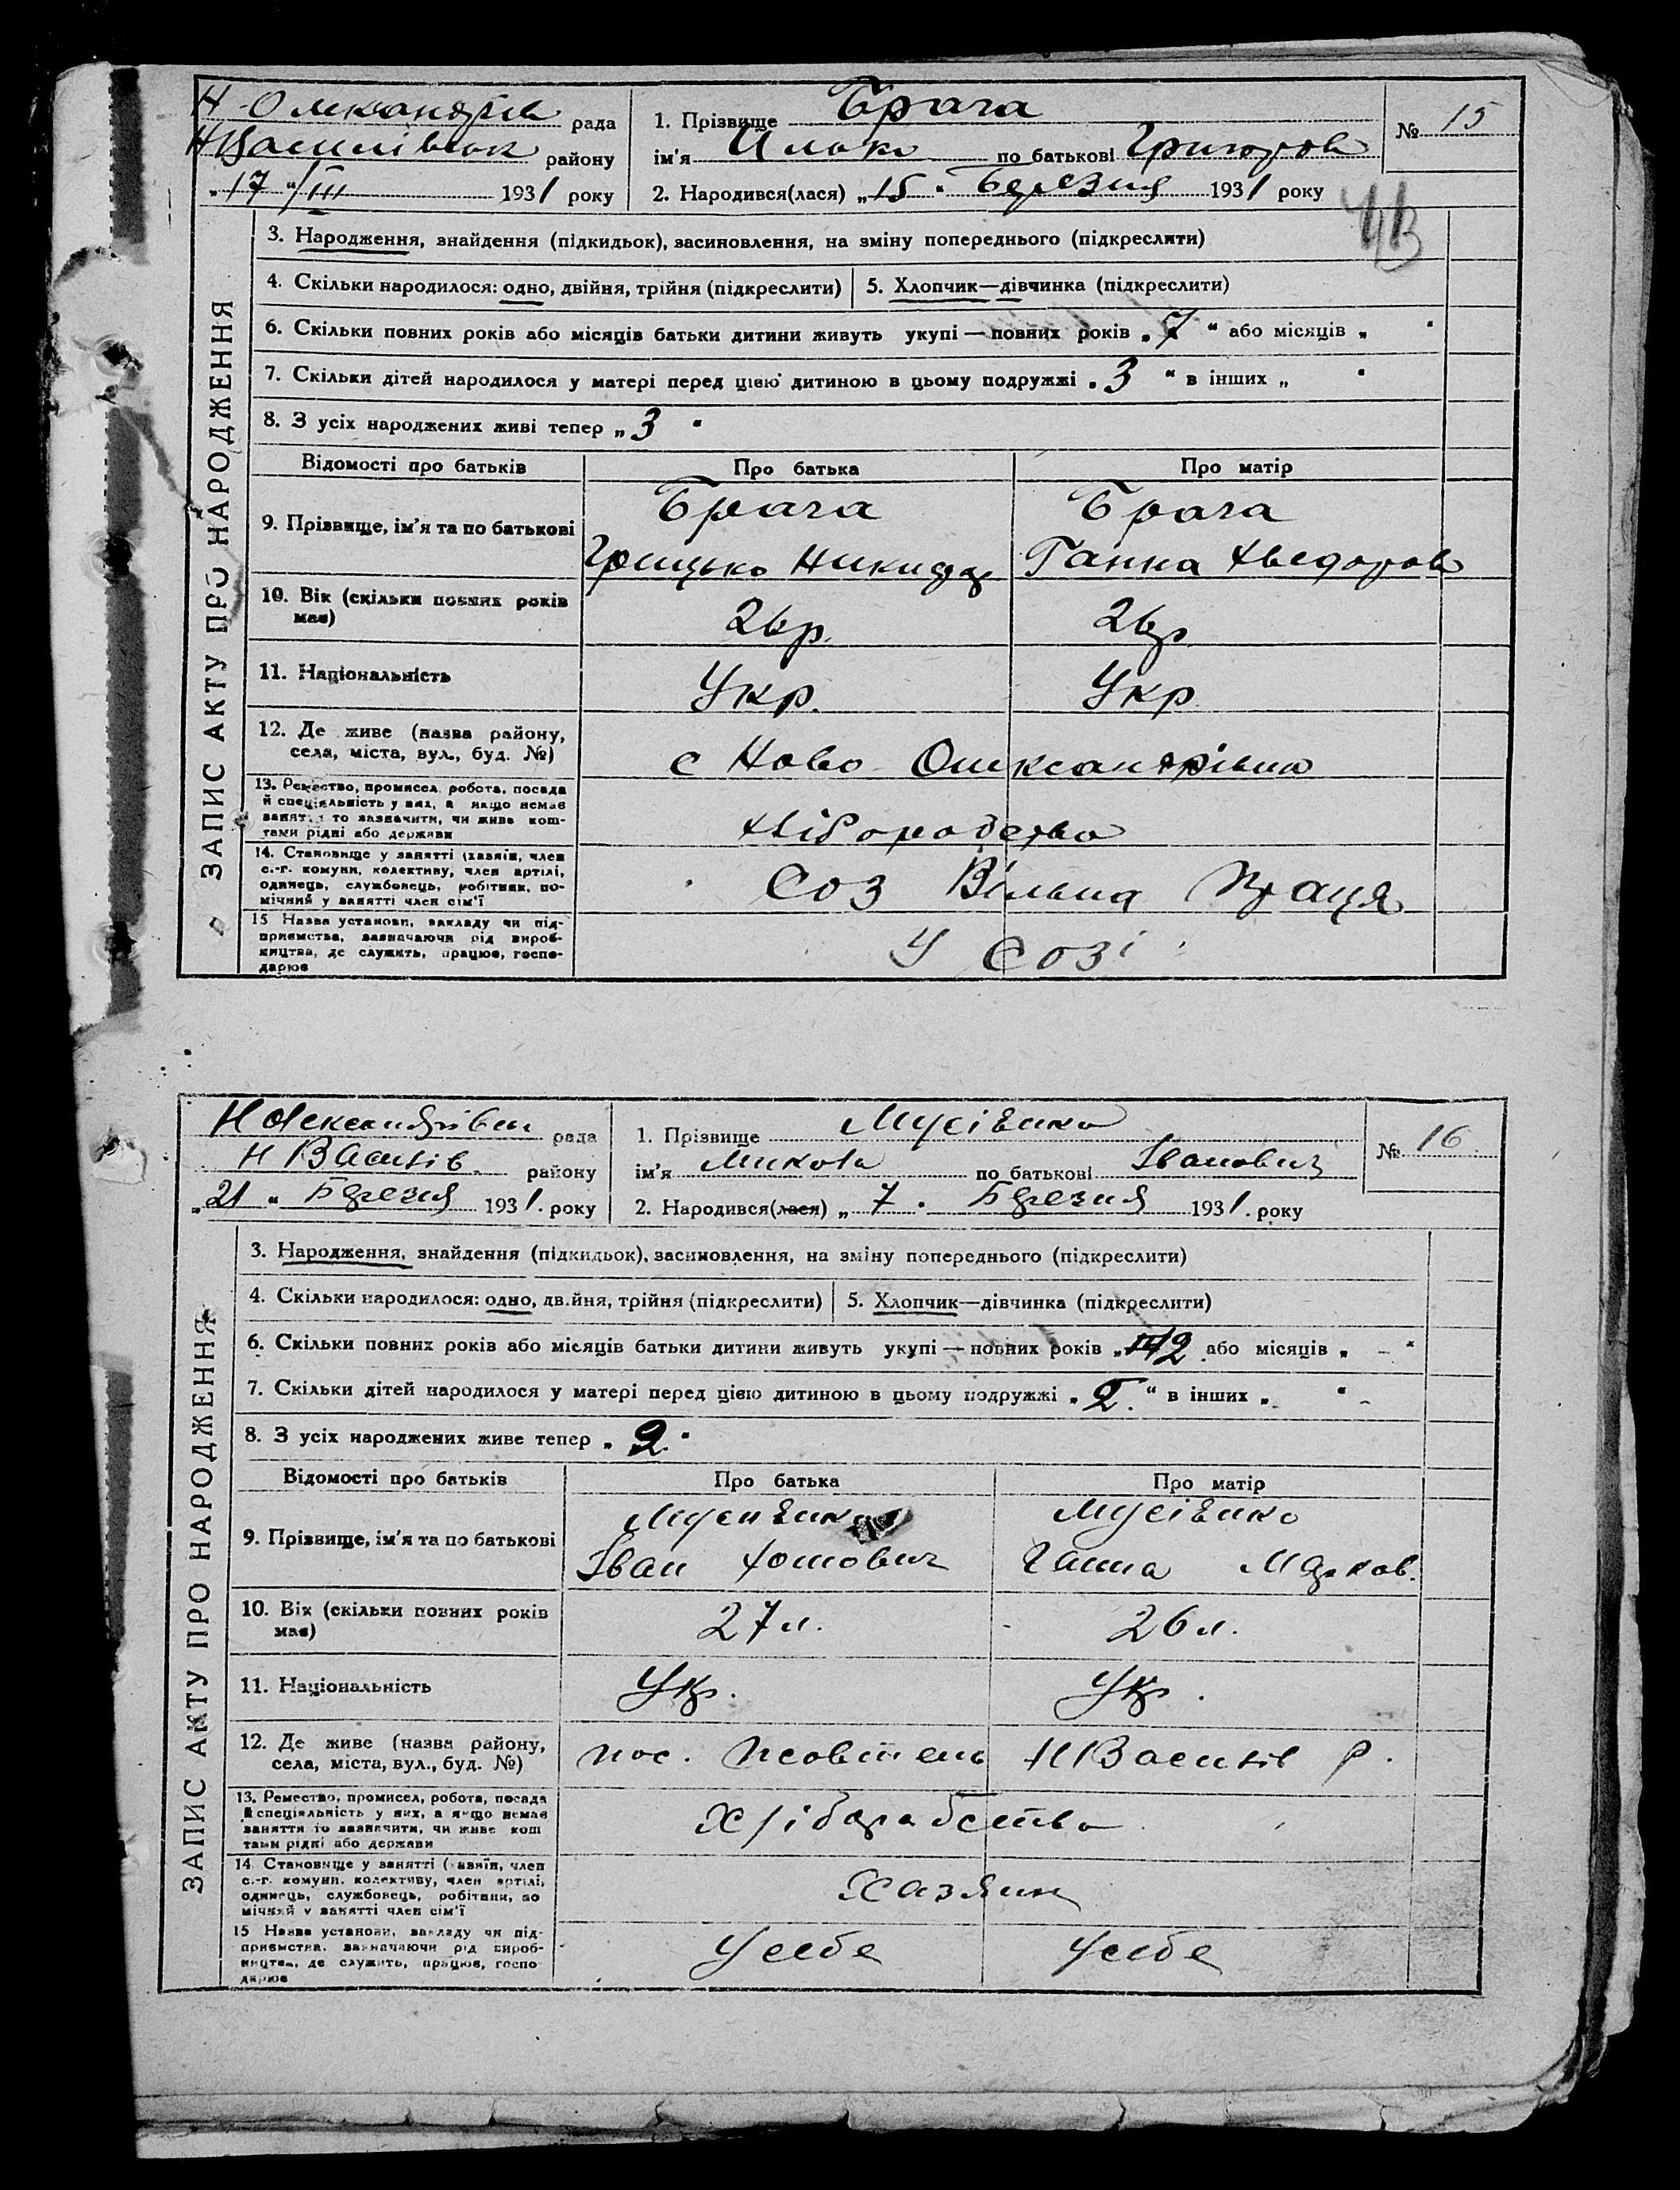 Н-Олександрів рада
НВасилівськ району
„17“/III 1931 року
1. Прізвище Брага
ім'я Илько по батькові Григоров
2. Народився(лася) „15“ Березня 1931 року
№ 15
ЗАПИС АКТУ ПРО НАРОДЖЕННЯ
3. Народження, знайдення (підкидьок), засиновлення, на зміну попереднього (підкреслити)
4. Скільки народилося: одно, двійня, трійня (підкреслити) 5. Хлопчик—дівчинка (підкреслити)
6. Скільки повних років або місяців батьки дитини живуть укупі — повних років „7“ або місяців „ “
7. Скільки дітей народилося у матері перед цією дитиною в цьому подружжі „3“ в інших „ “
8. З усіх народжених живі тепер „3“
Відомості про батьків Про батька Про матір
9. Прізвище, ім'я та по батькові
Брага Брага
Грицько Никид Ганна Хведоров
10. Вік (скільки повних років має)
26р. 26р
11. Національність Укр. Укр
12. Де живе (назва району, села, міста, вул., буд. №)
с Ново Олександрівка
13. Ремество, промисел, робота, посада
й спеціяльність у них, а якщо немає
заняття то зазначити, чи живе кош-
тами рідні або держави
14. Становище у занятті (хазяїн, член
с.-г. комуни, колективу, член артілі,
одинець, службовець, робітник, по-
мічний у занятті член сім'ї
СОЗ Вільна Праця
15 Назва установи, закладу чи під-
приємства, зазначаючи рід вироб-
ництва, де служить, працює, госпо-
дарює
У Созі
Н Олександрівки рада
Н Василів району
„21“ Березня 1931. року
1. Прізвище Мусієнко
ім'я Микола по батькові Іванович
2. Народився(лася) „7“ Березня 1931. року
№ 16
ЗАПИС АКТУ ПРО НАРОДЖЕННЯ
3. Народження, знайдення (підкидьок), засиновлення, на зміну попереднього (підкреслити)
4. Скільки народилося: одно, двійня, трійня (підкреслити) 5. Хлопчик—дівчинка (підкреслити)
6. Скільки повних років або місяців батьки дитини живуть укупі — повних років або місяців „ – “
7. Скільки дітей народилося у матері перед цією дитиною в цьому подружжі „2.“ в інших „ “
8. З усіх народжених живе тепер „2“
Відомості про батьків Про батька Про матір
9. Прізвище, ім'я та по батькові
Мусієнко
Іван Хомович Ганна Марков.
10. Вік (скільки повних років має)
27 л. 26 л.
11. Національність Укр. Укр.
12. Де живе (назва району, села, міста, вул., буд. №)
пос. НВасилів р.
13. Ремество, промисел, робота, посада
й спеціяльність у них, а якщо немає
заняття то зазначити, чи живе кош
тами рідні або держави
Хліборобство
14. Становище у занятті (хазяїн, член
с.-г. комуни, колективу, член артілі,
одинець, службовець, робітник, по
мічний у занятті член сім'ї
Хазяин
15 Назва установи, закладу чи під-
приємства, зазначаючи рід вироб-
ництва, де служить, працює, госпо
дарює
У себе У себе